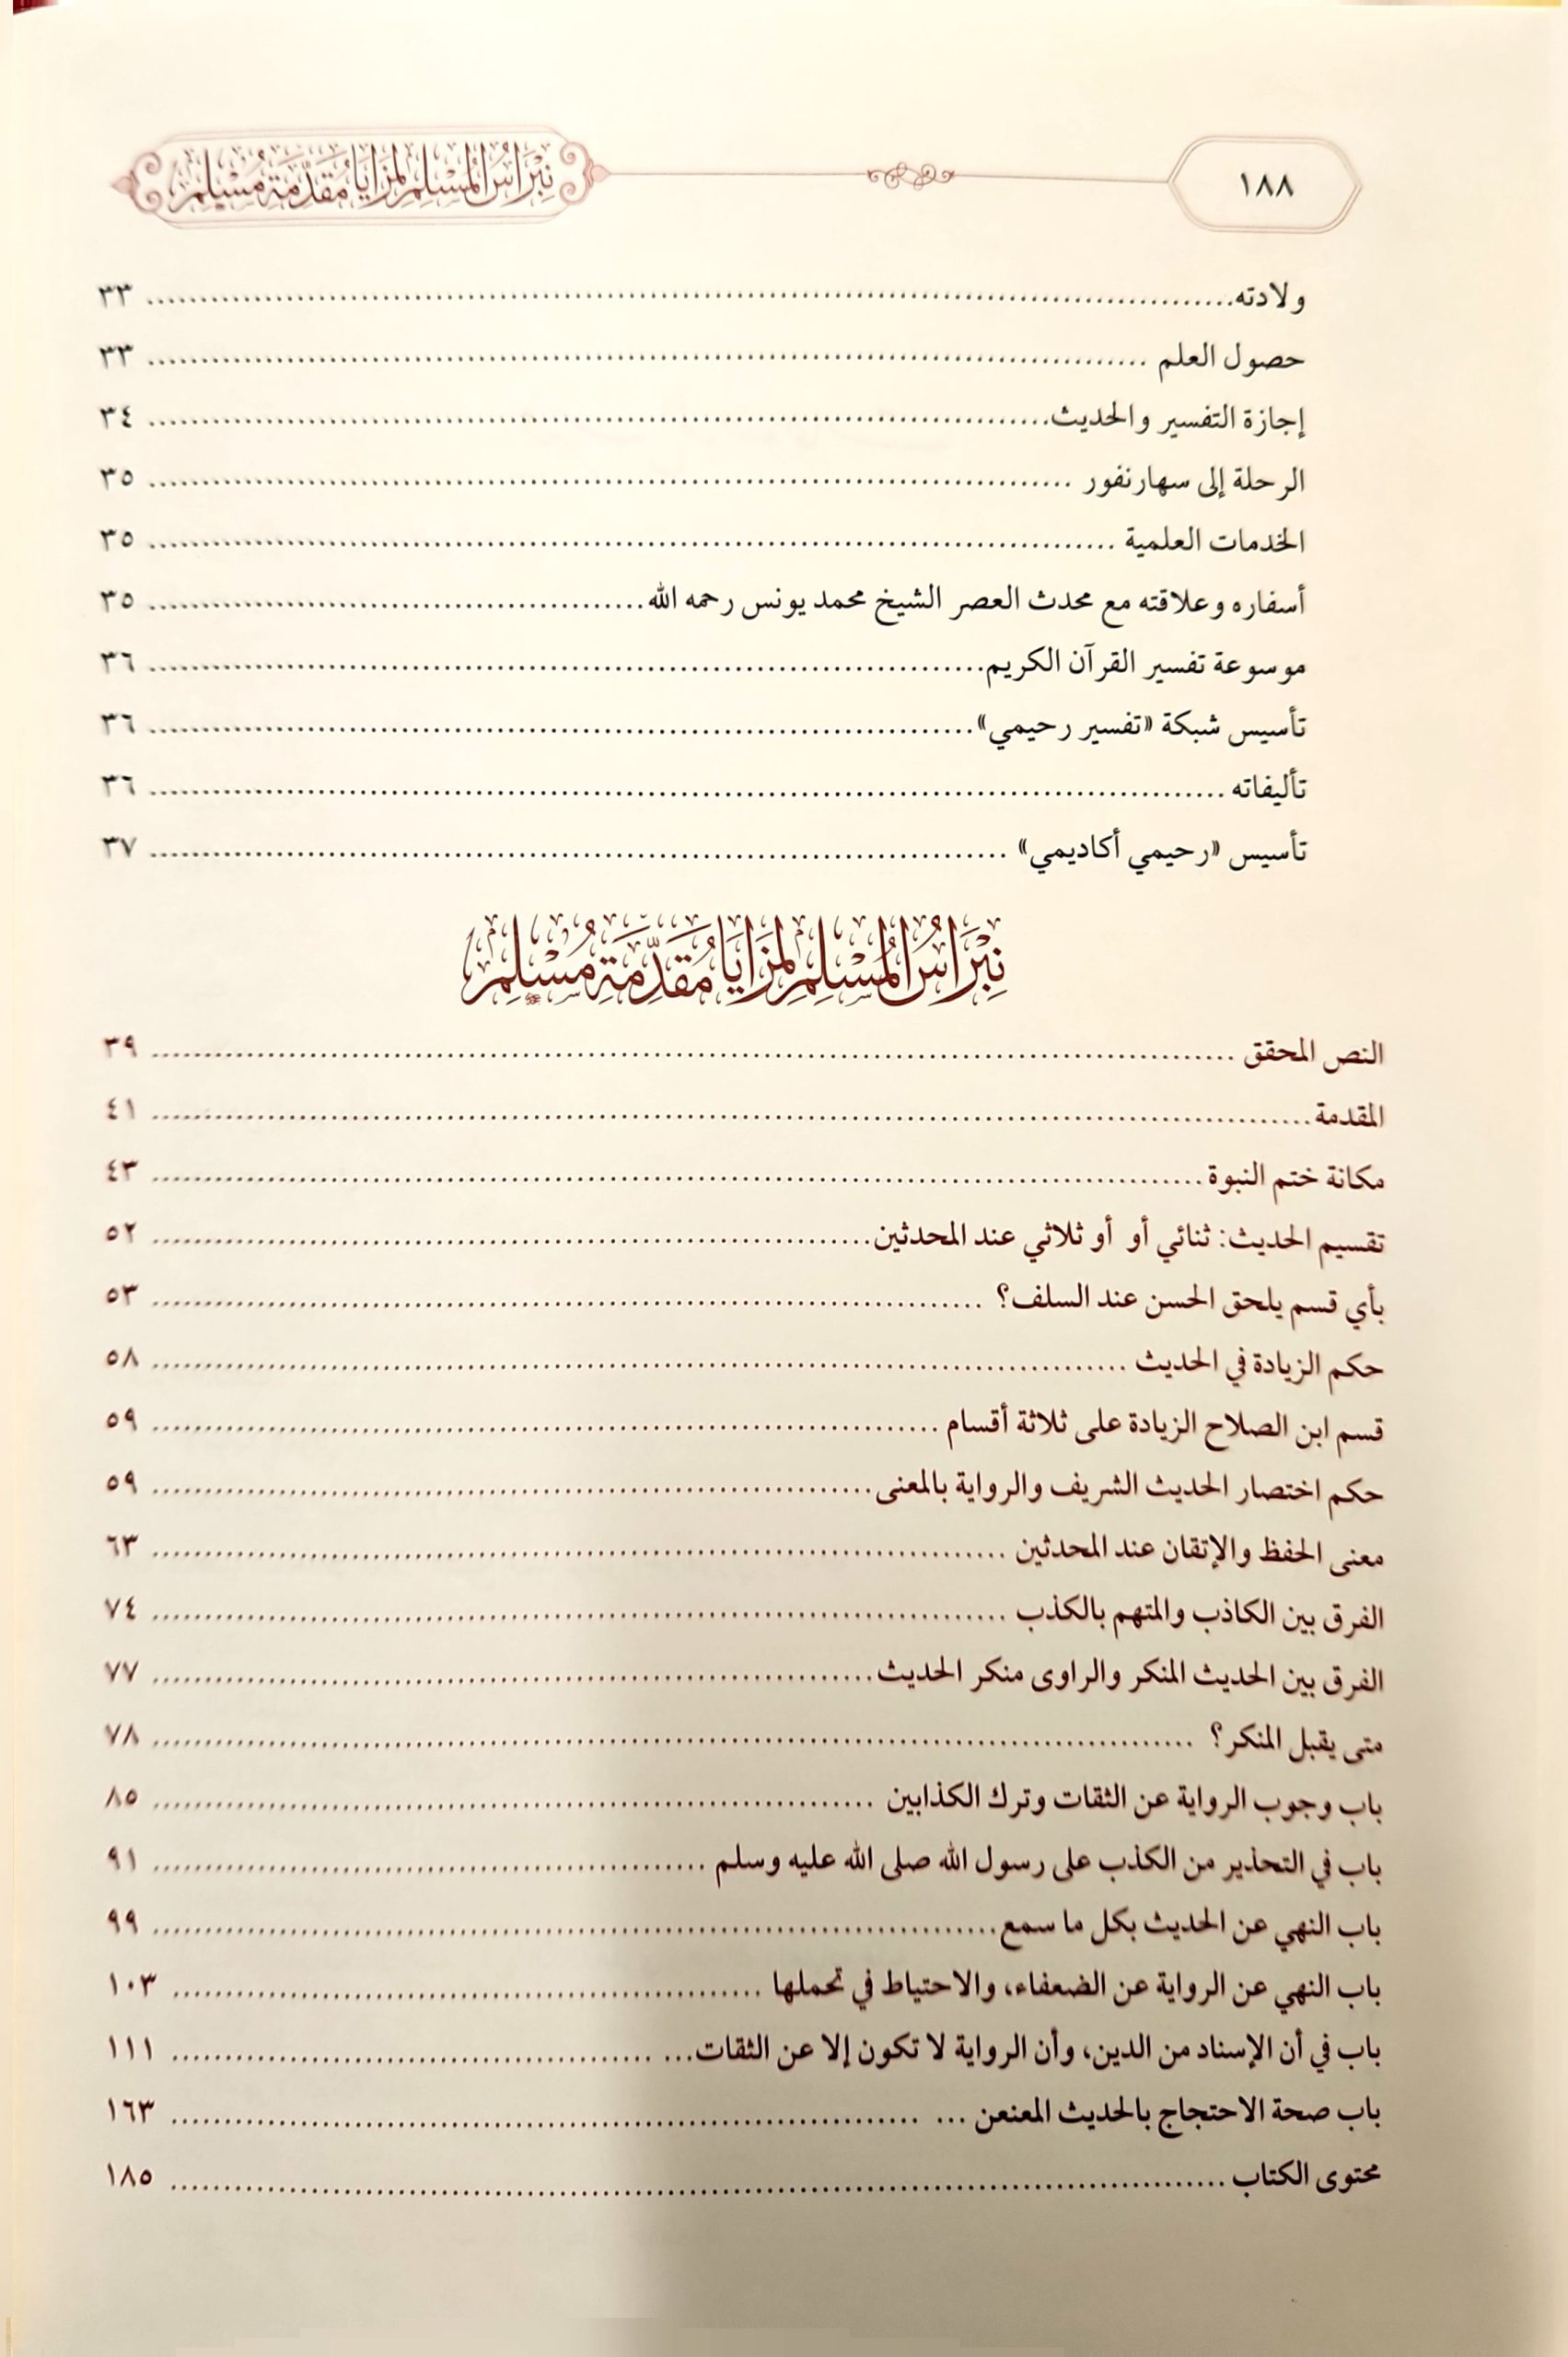 ١٨٨ نِبْرَاسُ المُسْلِمِ لِمَزَايَا مُقَدِّمَةِ مُسْلِمٍ
ولادته ٣٣
حصول العلم ٣٣
إجازة التفسير والحديث ٣٤
الرحلة إلى سهارنفور ٣٥
الخدمات العلمية ٣٥
أسفاره وعلاقته مع محدث العصر الشيخ محمد يونس رحمه الله ٣٥
موسوعة تفسير القرآن الكريم ٣٦
تأسيس شبكة «تفسير رحيمي» ٣٦
تأليفاته ٣٦
تأسيس «رحيمي أكاديمي» ٣٧
نِبْرَاسُ المُسْلِمِ لِمَزَايَا مُقَدِّمَةِ مُسْلِمٍ
النص المحقق ٣٩
المقدمة ٤١
مكانة ختم النبوة ٤٣
تقسيم الحديث: ثنائي أو أو ثلاثي عند المحدثين ٥٢
بأي قسم يلحق الحسن عند السلف؟ ٥٣
حكم الزيادة في الحديث ٥٨
قسم ابن الصلاح الزيادة على ثلاثة أقسام ٥٩
حكم اختصار الحديث الشريف والرواية بالمعنى ٥٩
معنى الحفظ والإتقان عند المحدثين ٦٣
الفرق بين الكاذب والمتهم بالكذب ٧٤
الفرق بين الحديث المنكر والراوى منكر الحديث ٧٧
متى يقبل المنكر؟ ٧٨
باب وجوب الرواية عن الثقات وترك الكذابين ٨٥
باب في التحذير من الكذب على رسول الله صلى الله عليه وسلم ٩١
باب النهي عن الحديث بكل ما سمع ٩٩
باب النهي عن الرواية عن الضعفاء، والاحتياط في تحملها ١٠٣
باب في أن الإسناد من الدين، وأن الرواية لا تكون إلا عن الثقات... ١١١
باب صحة الاحتجاج بالحديث المعنعن ... ١٦٣
محتوى الكتاب ١٨٥